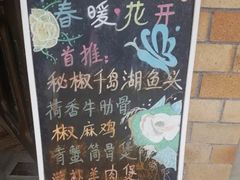 春暖花开
首推：
秘椒千岛湖鱼头
荷香牛肋骨
椒麻鸡
青蟹筒骨煲
羊肉煲